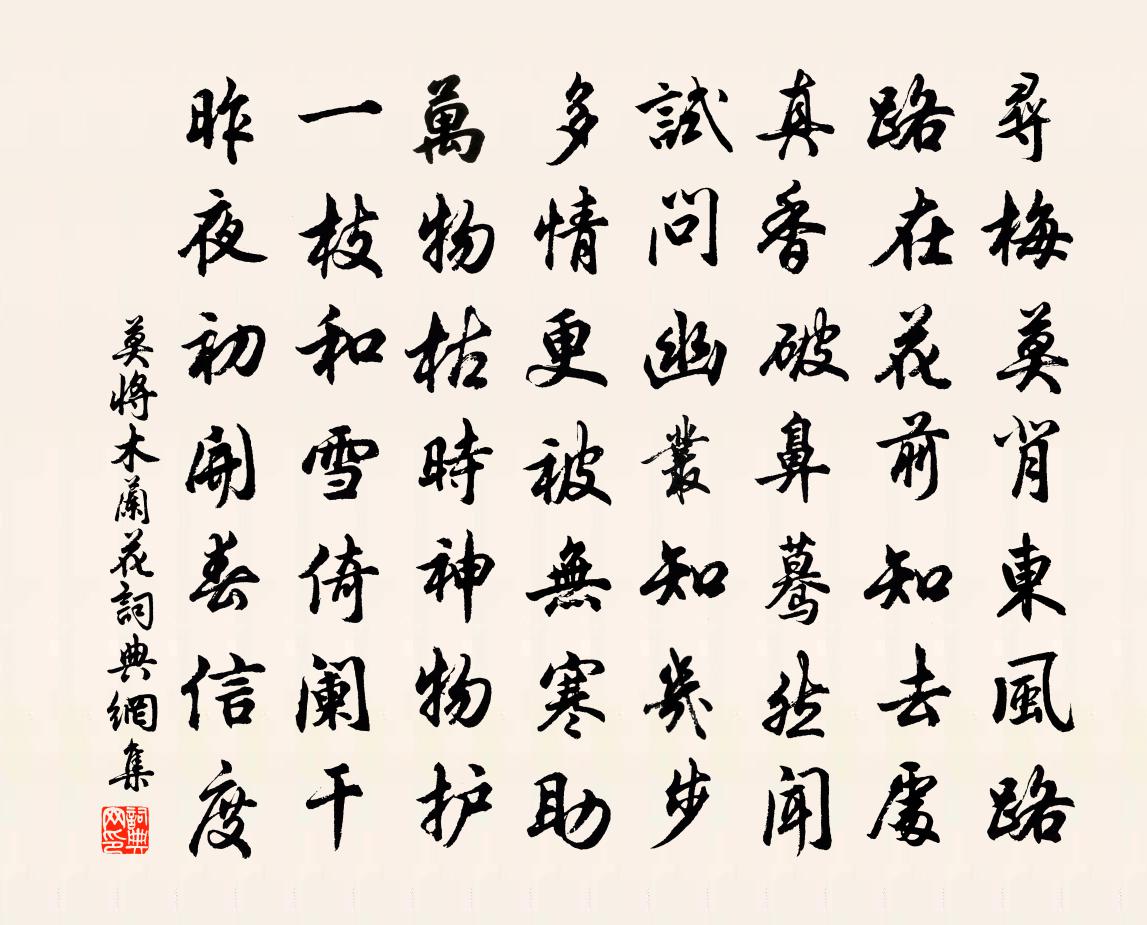 尋梅莫背東風路
路在花前知去處
真香破鼻驀然聞
試問幽叢知幾步
多情更被無寒助
萬物枯時神物护
一枝和雪倚阑干
昨夜初開春信度
莫將木蘭花詞典網集
詞典網印